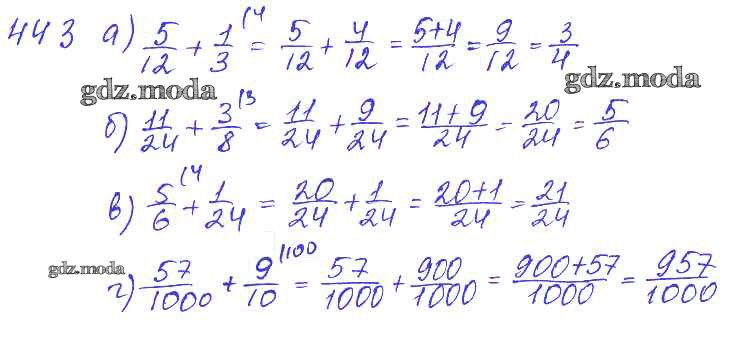 443 а) 5/12 + 1/3 (4 = 5/12 + 4/12 = 5+4/12 = 9/12 = 3/4
gdz.moda gdz.moda
б) 11/24 + 3/8 (3 = 11/24 + 9/24 = 11+9/24 = 20/24 = 5/6
в) 5/6 (4 + 1/24 = 20/24 + 1/24 = 20+1/24 = 21/24
gdz.moda
г) 57/1000 + 9/10 (100 = 57/1000 + 900/1000 = 900+57/1000 = 957/1000